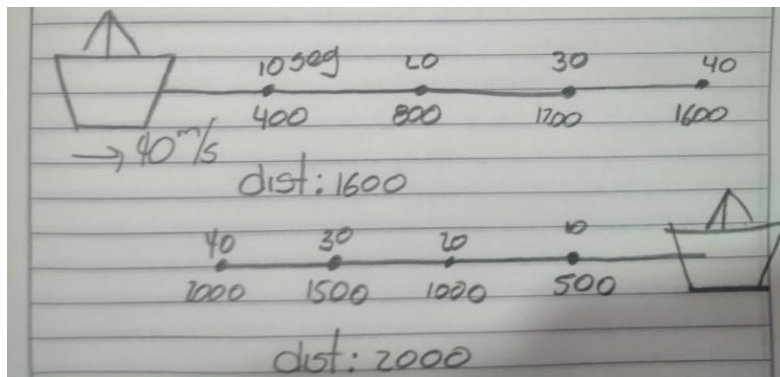 10 seg 20 30 40
400 800 1200 1600
→ 40 m/s
dist: 1600
40 30 20 10
2000 1500 1000 500
dist: 2000